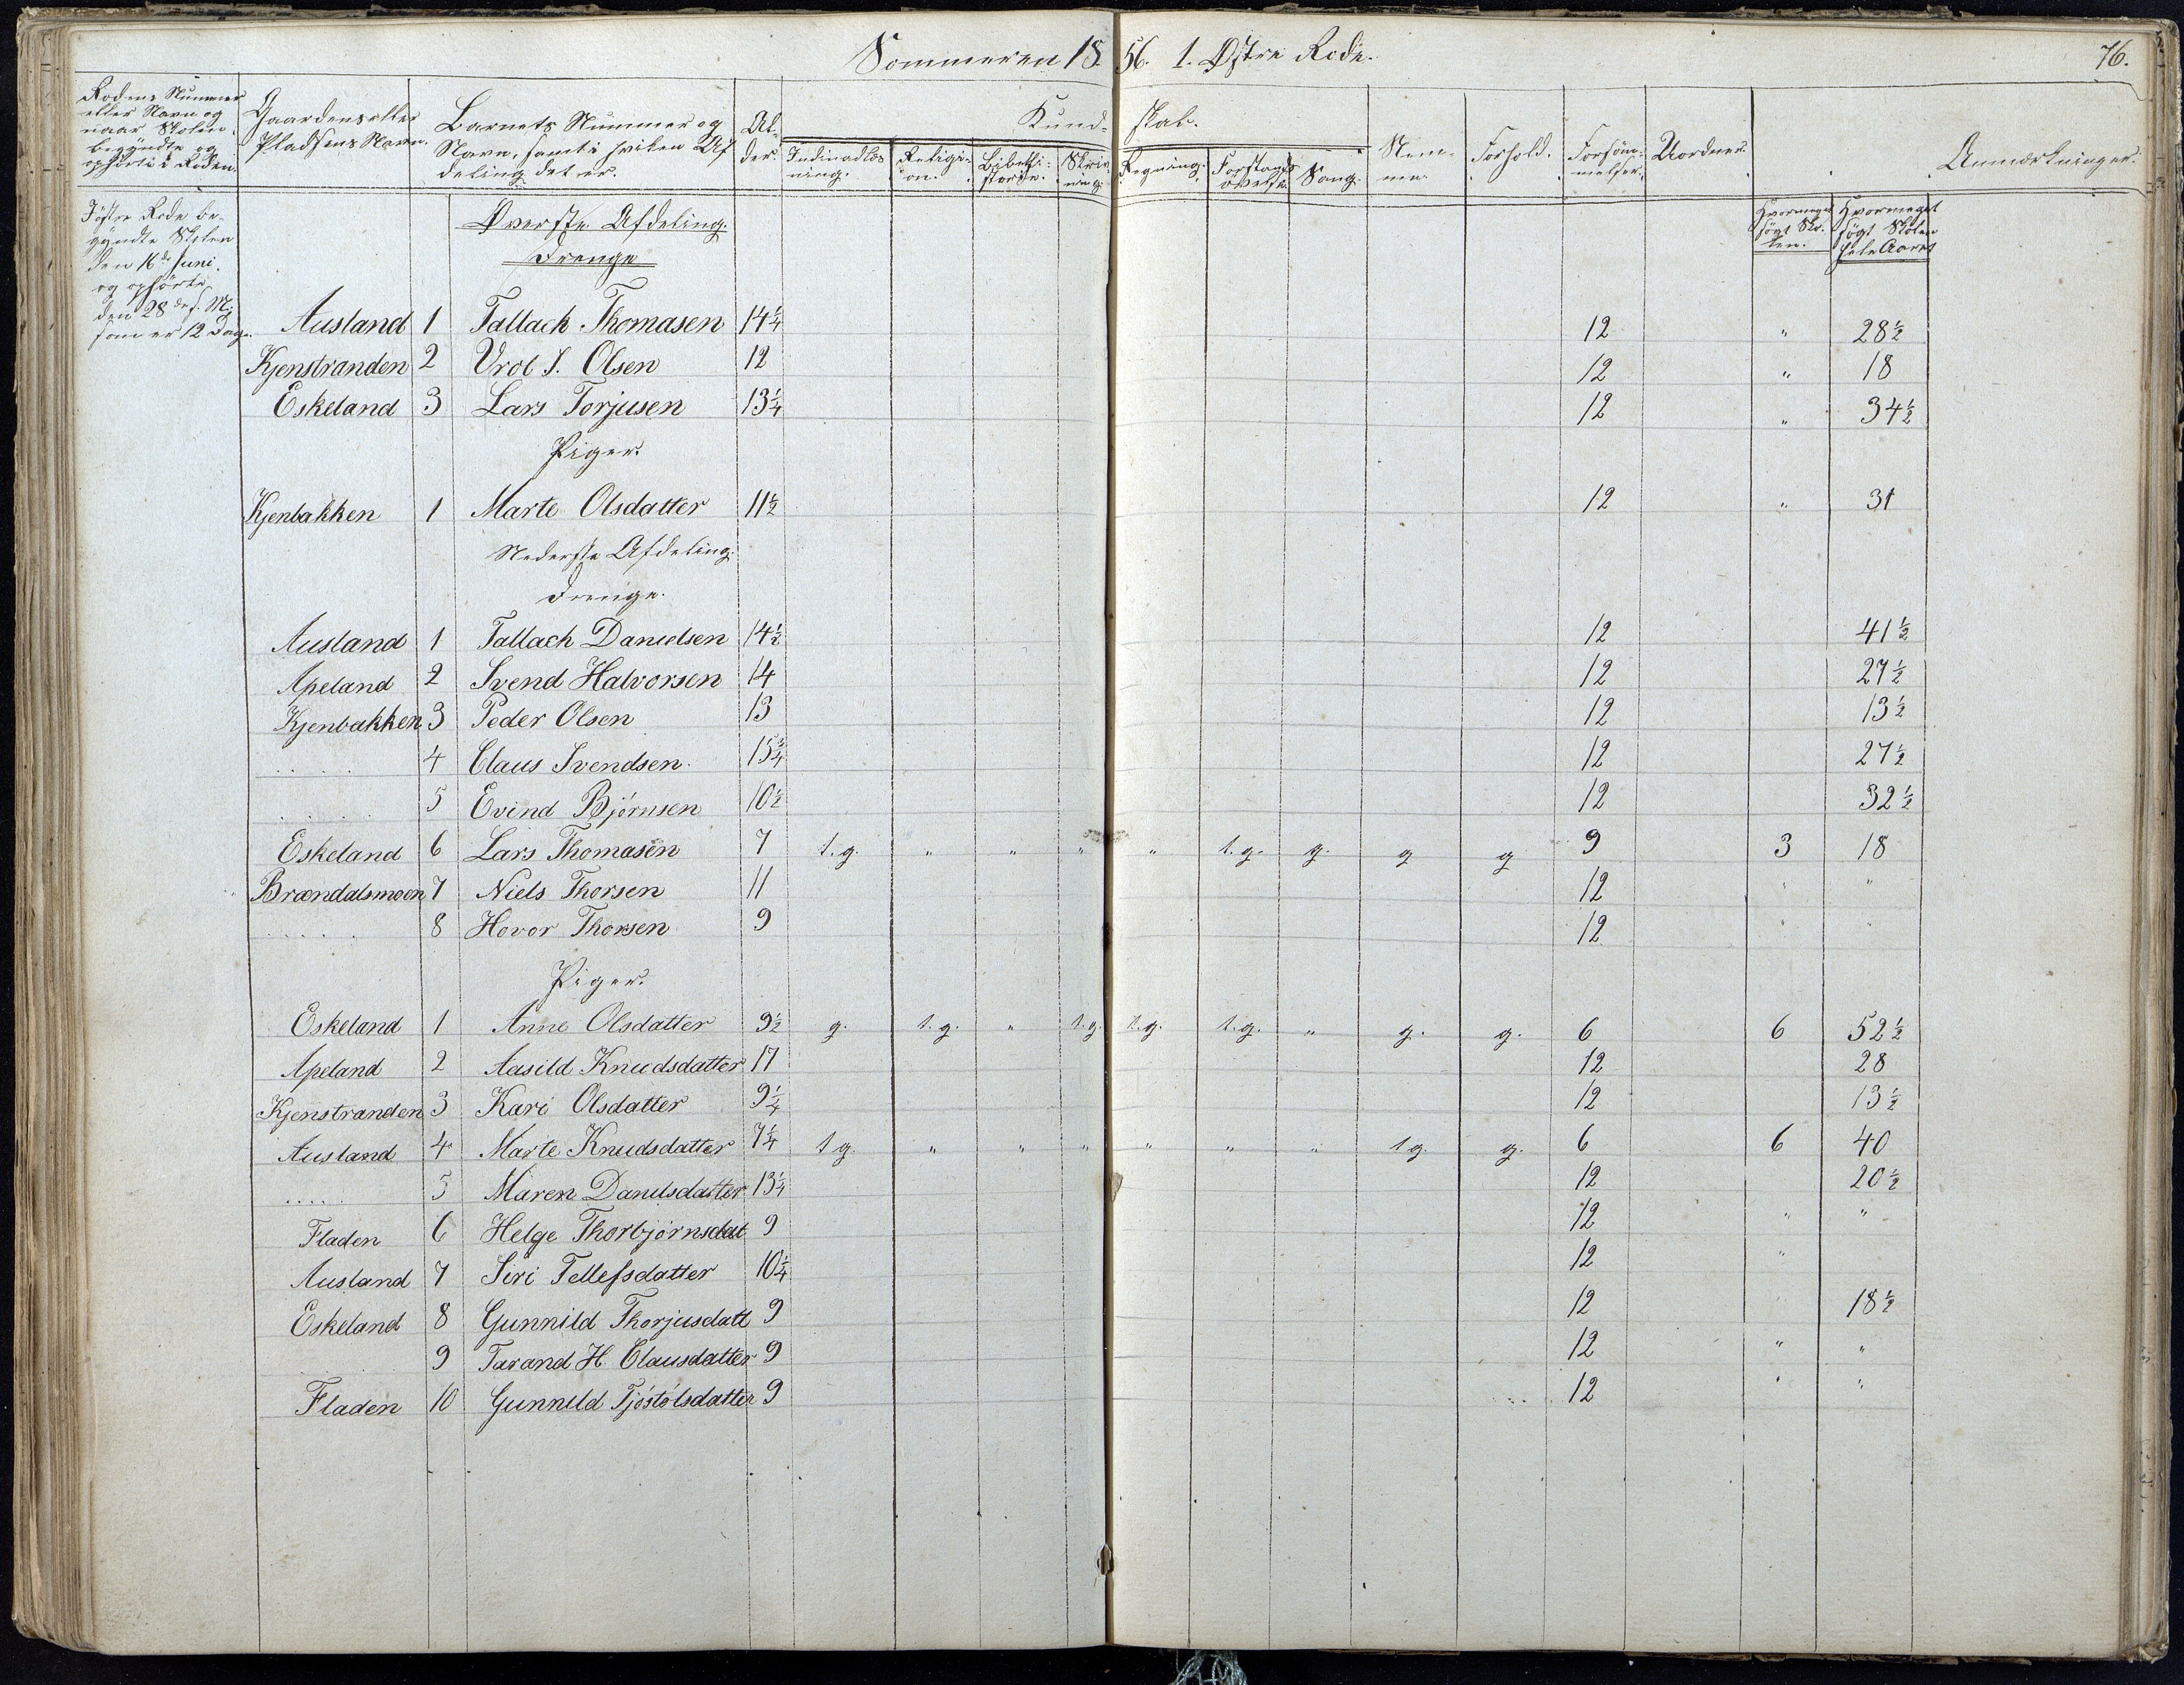 Sommeren 1856. 1. Østre Rode. 76.
Rodens Nummer eller Navn og naar Skolen begyndte og ophørte i Roden.
Gaardens eller Pladsens Navn.
Barnets Nummer og Navn, samt i hvilken Afdeling det er.
Alder.
Kundskab.
Indenadlæsning. Religion. Bibelhistorie. Skrivning. Regning. Forstandsøvelse. Sang.
Nemme. Forhold. Forsømmelser. Uordner. Anmærkninger.
Hvormeget søgt Skolen. Hvormeget søgt Skolen hele Aaret
I østre Rode begyndte Skolen den 16de Juni og ophørte den 28de s. M; som er 12 Dage.
Øverste Afdeling.
Drenge
Ausland 1 Tallach Thomasen 14¼ 12 " 28½
Kjenstranden 2 Vrol I. Olsen 12 12 " 18
Eskeland 3 Lars Torjusen 13¼ 12 " 34½
Piger.
Kjenbakken 1 Marte Olsdatter 11½ 12 " 31
Nederste Afdeling.
Drenge.
Ausland 1 Tallach Danielsen 14½ 12 41½
Apeland 2 Svend Halvorsen 14 12 27½
Kjenbakken 3 Peder Olsen 13 12 13½
..... 4 Claus Svendsen. 15¾ 12 27½
..... 5 Evind Bjørnsen 10½ 12 32½
Eskeland 6 Lars Thomasen 7 t.g. " " " " t.g. g. g g 9 3 18
Brændalsmoen 7 Niels Thorsen 11 12 " "
..... 8 Hovor Thorsen 9 12 " "
Piger.
Eskeland 1 Anne Olsdatter 9½ g. t.g. " t.g. t.g. t.g. " g. g. 6 6 52½
Apeland 2 Aasild Knudsdatter 17 12 28
Kjenstranden 3 Kari Olsdatter 9¼ 12 13½
Ausland 4 Marte Knudsdatter 7¼ t g. " " " " " " t g. g. 6 6 40
..... 5 Maren Danilsdatter 13¼ 12 20½
Fladen 6 Helge Thorbjørnsdat 9 12 " "
Ausland 7 Siri Tellefsdatter 10¼ 12 "
Eskeland 8 Gunnild Thorjusdatt 9 12 18½
9 Tarand H. Clausdatter 9 12 " "
Fladen 10 Gunnild Tjøstølsdatter 9 12 " "